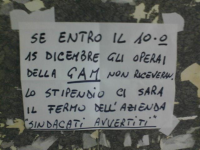 SE ENTRO IL 10-0
15 DICEMBRE GLI OPERAI
DELLA GAM NON RICEVERAN
LO STIPENDIO CI SARA
IL FERMO DELL'AZIENDA
"SINDACATI AVVERTITI"